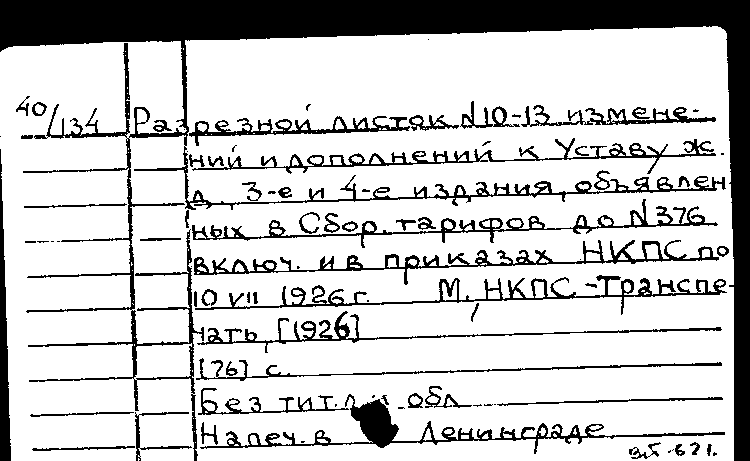 40/134 Разрезной листок N10-13 измене-
ний и дополнений к Уставу ж.
д., 3-е и 4-е издания, объявлен-
ных в Сбор. тарифов до N376
включ. и в приказах НКПС по
10 VII 1926 г. М., НКПС-Транспе-
чать, [1926]
[76] с.
Без тит. л и обл
Напеч. в Ленинграде